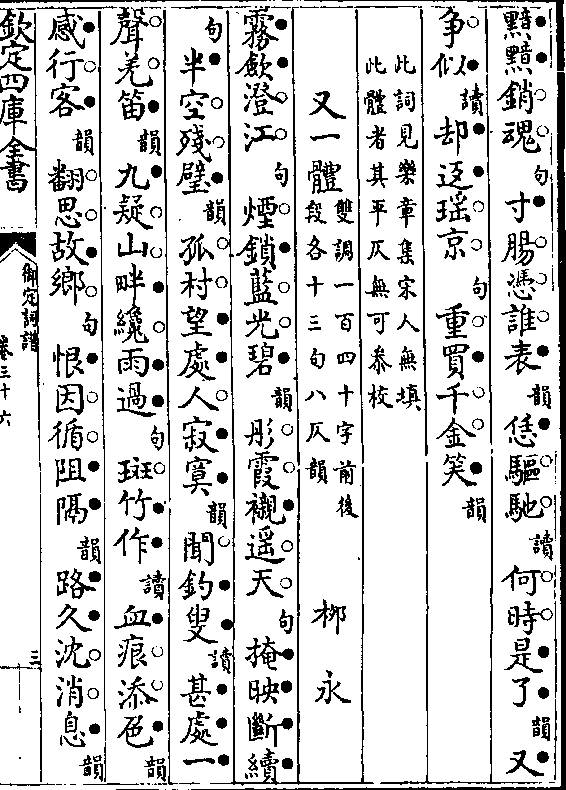 黯黯銷魂句寸腸憑誰表韻恁驅馳讀何時是了韻又
争似讀却返瑶京句重買千金笑韻
此詞見樂章集宋人無填
此體者其平仄無可叅校
又一體雙調一百四十字前後
段各十三句八仄韻
柳永
霧歛澄江句煙鎖藍光碧韻彤霞襯遥天句掩映斷續
句半空殘璧韻孤村望處人寂寞韻聞釣叟讀甚處一
聲羌笛韻九疑山畔纔雨過句斑竹作讀血痕添色韻
感行客韻翻思故鄉句恨因循阻隔韻路久沈消息韻
欽定四庫全書
御定詞譜
卷三十六
三